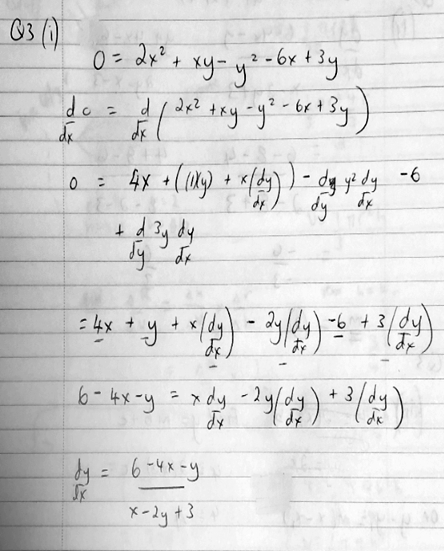 Q3 (i)
0 = 2x² + xy - y² - 6x + 3y
d/dx 0 = d/dx (2x² + xy - y² - 6x + 3y)
0 = 4x + ((1)(y) + x(dy/dx)) - d/dy y² dy/dx - 6
+ d/dy 3y dy/dx
= 4x + y + x(dy/dx) - 2y(dy/dx) - 6 + 3(dy/dx)
6 - 4x - y = x dy/dx - 2y(dy/dx) + 3(dy/dx)
dy/dx = 6 - 4x - y / x - 2y + 3